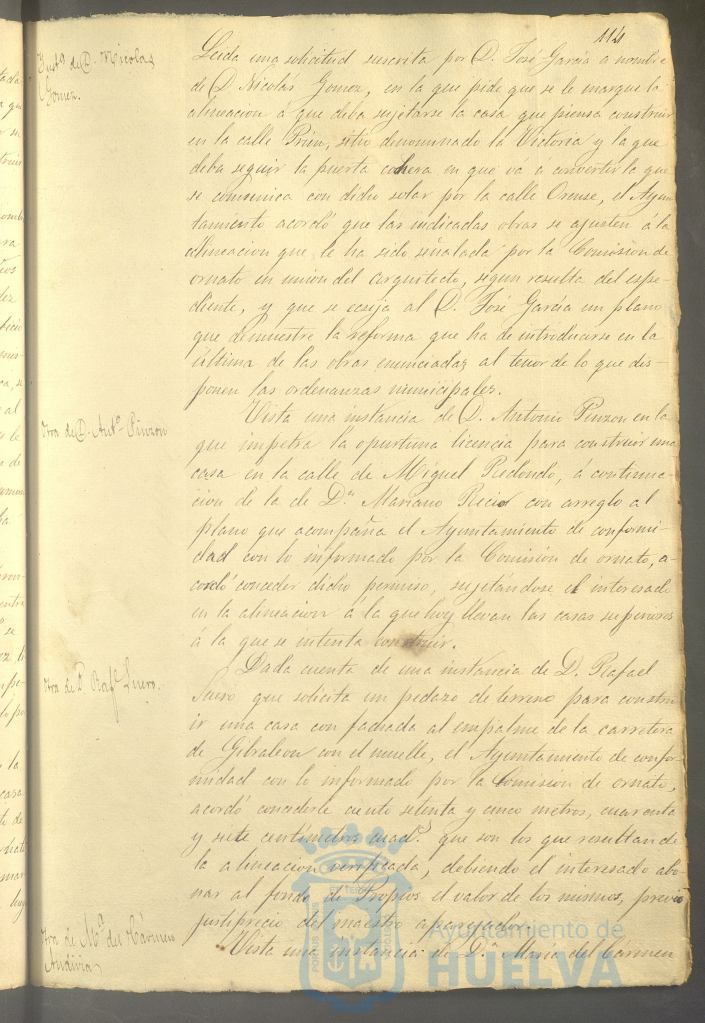 114
Inst.ª de D. Nicolas
Gomez.
Leida una solicitud suscrita por D. José García a nombre
de D Nicolás Gomez, en la que pide que se le marque la
alineacion á que deba sujetarse la casa que piensa construir
en la calle Prim, sitio denominado la Victoria y la que
deba seguir la puerta cochera en que vá á convertir la que
se comunica con dicho solar por la calle Orense, el Ayun-
tamiento acordó que las indicadas obras se ajusten á la
alineacion que le ha sido señalada por la Comision de
ornato en union del arquitecto, segun resulta del espe-
diente, y que se ecsija al D. José García un plano
que demuestre la reforma que ha de introducirse en la
última de las obras enunciadas al tenor de lo que dis-
ponen las ordenanzas municipales.
Otra de D. Ant.º Pinzon
Vista una instancia de D. Antonio Pinzon en la
que impetra la oportuna licencia para construir una
casa en la calle de Miguel Redondo, á continua-
cion de la de D.n Mariano Recio con arreglo al
plano que acompaña el Ayuntamiento de conformi-
dad con lo informado por la Comision de ornato, a-
cordó conceder dicho permiso, sujetándose el interesado
en la alineacion á la que hoy llevan las casas superiores
á la que se intenta construir.
Otra de D. Raf.l Suero.
Dada cuenta de una instancia de D. Rafael
Suero que solicita un pedazo de terreno para constru-
ir una casa con fachada al empalme de la carretera
de Gibraleon con el muelle, el Ayuntamiento de confor-
midad con lo informado por la Comision de ornato,
acordó concederle ciento setenta y cinco metros, cuarenta
y siete centimetros cuad.s que son los que resultan de
la alineacion verificada, debiendo el interesado abo-
nar al fondo de Propios el valor de los mismos, previo
justiprecio del maestro aparejador.
Otra de M.ª del Cármen
Andivia
Vista una instancia de D.ª María del Carmen
Ayuntamiento de
HUELVA